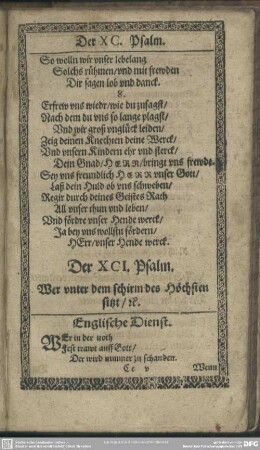 Der XC. Psalm.
So wolln wir vnser lebelang
Solchs rühmen/vnd mit frewden
Dir sagen lob vnd danck.
8.
Erfrew vns wiedr/wie du zusagst/
Nach dem du vns so lange plagst/
Vnd wir groß vnglück leiden/
Zeig deinen Knechten deine Werck/
Vnd vnsern Kindern ehr vnd sterck/
Dein Gnad/HERR/bringe vns frewde.
Sey vns freundlich HERR vnser Gott/
Laß dein Huld ob vns schweben/
Regir durch deines Geistes Rach
All vnser thun vnd leben/
Vnd fördre vnser Hende werck/
Ja bey vns wollstu fördern/
HErr/vnser Hende werck.
Der XCI. Psalm.
Wer vnter dem schirm des Höchsten
sitzt/ꝛc.
Englische Dienst.
WEr in der noth
Fest trawt auff Gott/
Der wird nimmer zu schanden.
Cc v
Wenn
DFG